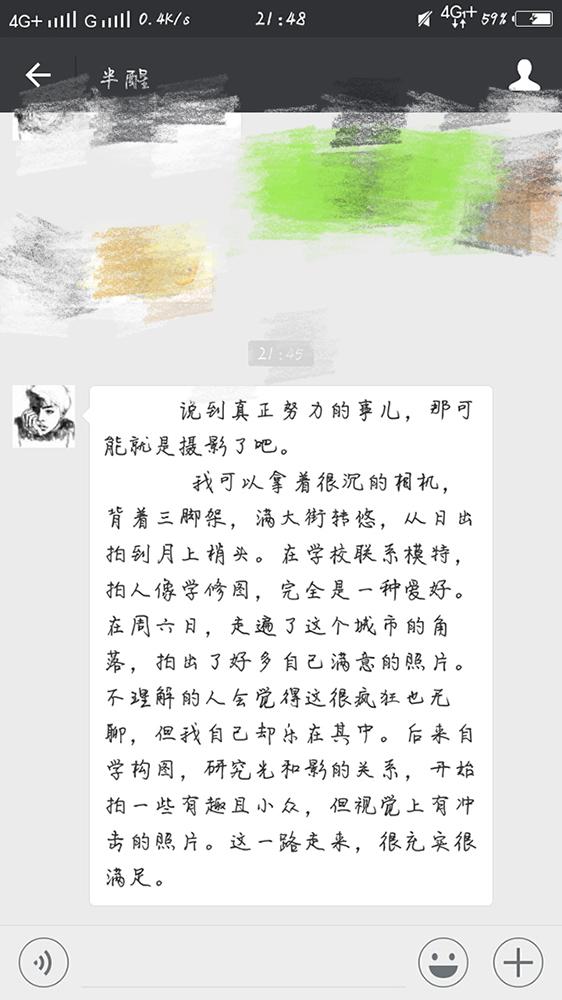 4G+ G 0.4K/s 21:48 4G 1+ 59%
半醒
21:45
说到真正努力的事儿，那可
能就是摄影了吧。
我可以拿着很沉的相机，
背着三脚架，满大街转悠，从日出
拍到月上梢头。在学校联系模特，
拍人像学修图，完全是一种爱好。
在周六日，走遍了这个城市的角
落，拍出了好多自己满意的照片。
不理解的人会觉得这很疯狂也无
聊，但我自己却乐在其中。后来自
学构图，研究光和影的关系，开始
拍一些有趣且小众，但视觉上有冲
击的照片。这一路走来，很充实很
满足。